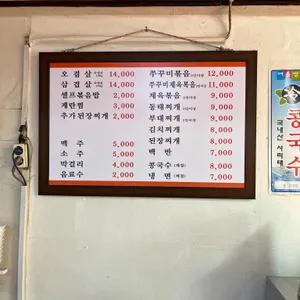 오겹살 14,000
삼겹살 14,000
셀프볶음밥 2,000
계란찜 3,000
추가된장찌개 2,000
맥주 5,000
소주 5,000
막걸리 4,000
음료수 2,000
쭈꾸미볶음 12,000
쭈꾸미제육볶음 11,000
제육볶음 9,000
동태찌개 9,000
부대찌개 9,000
김치찌개 8,000
된장찌개 8,000
백반 7,000
콩국수 (계절) 8,000
냉면 (계절) 7,000
여름
콩국수
국내산 서리태